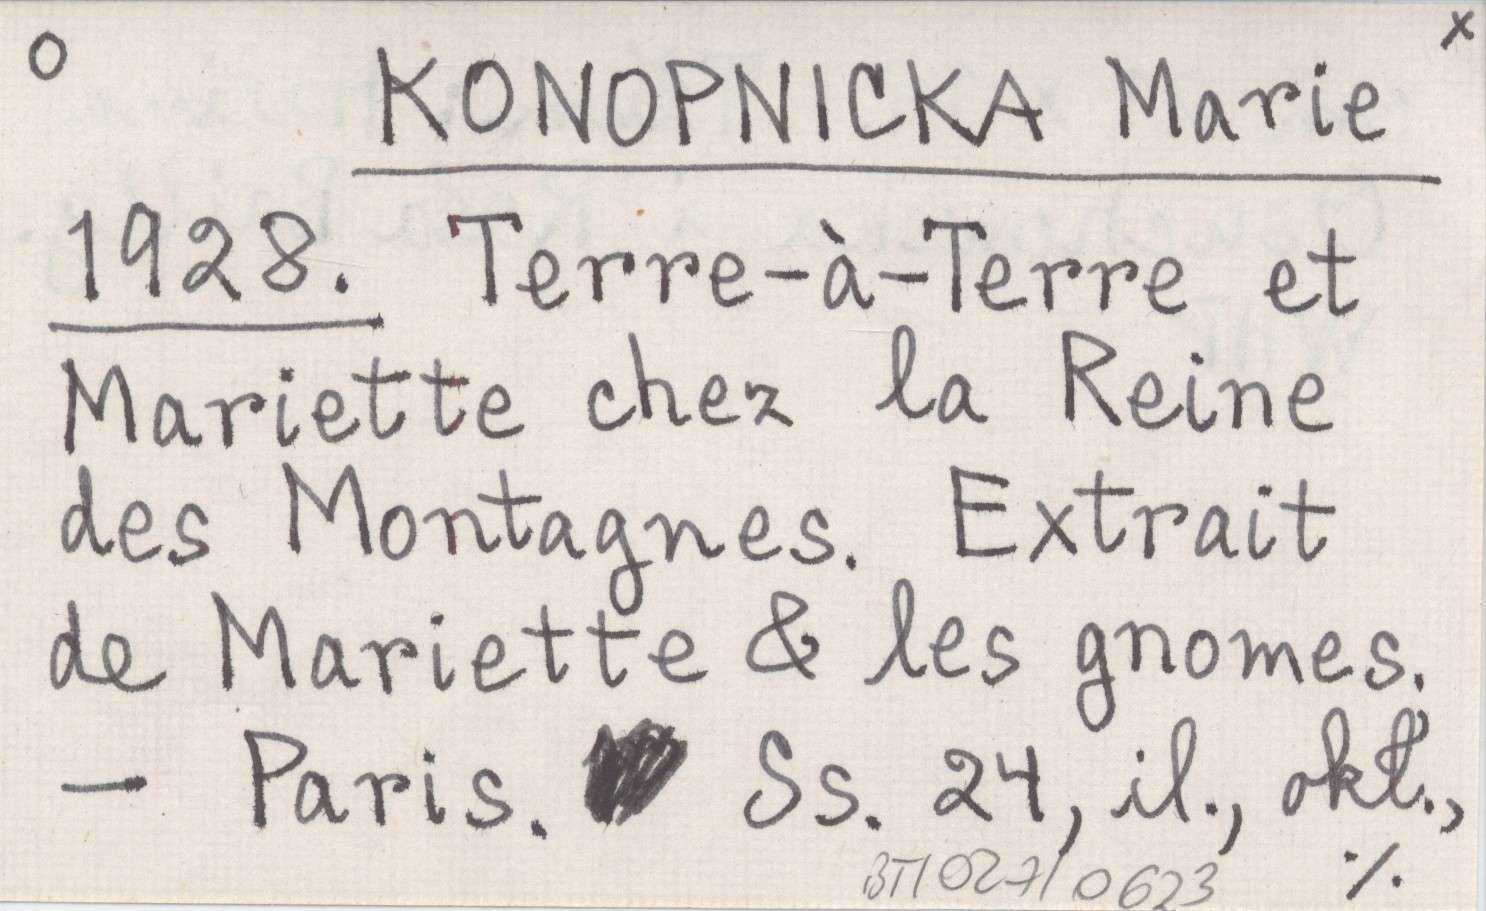 O x
KONOPNICKA Marie
1928. Terre-à-Terre et
Mariette chez la Reine
des Montagnes. Extrait
de Mariette & les gnomes.
— Paris. Ss. 24, il., okł.,
BT/027/0623 ./.